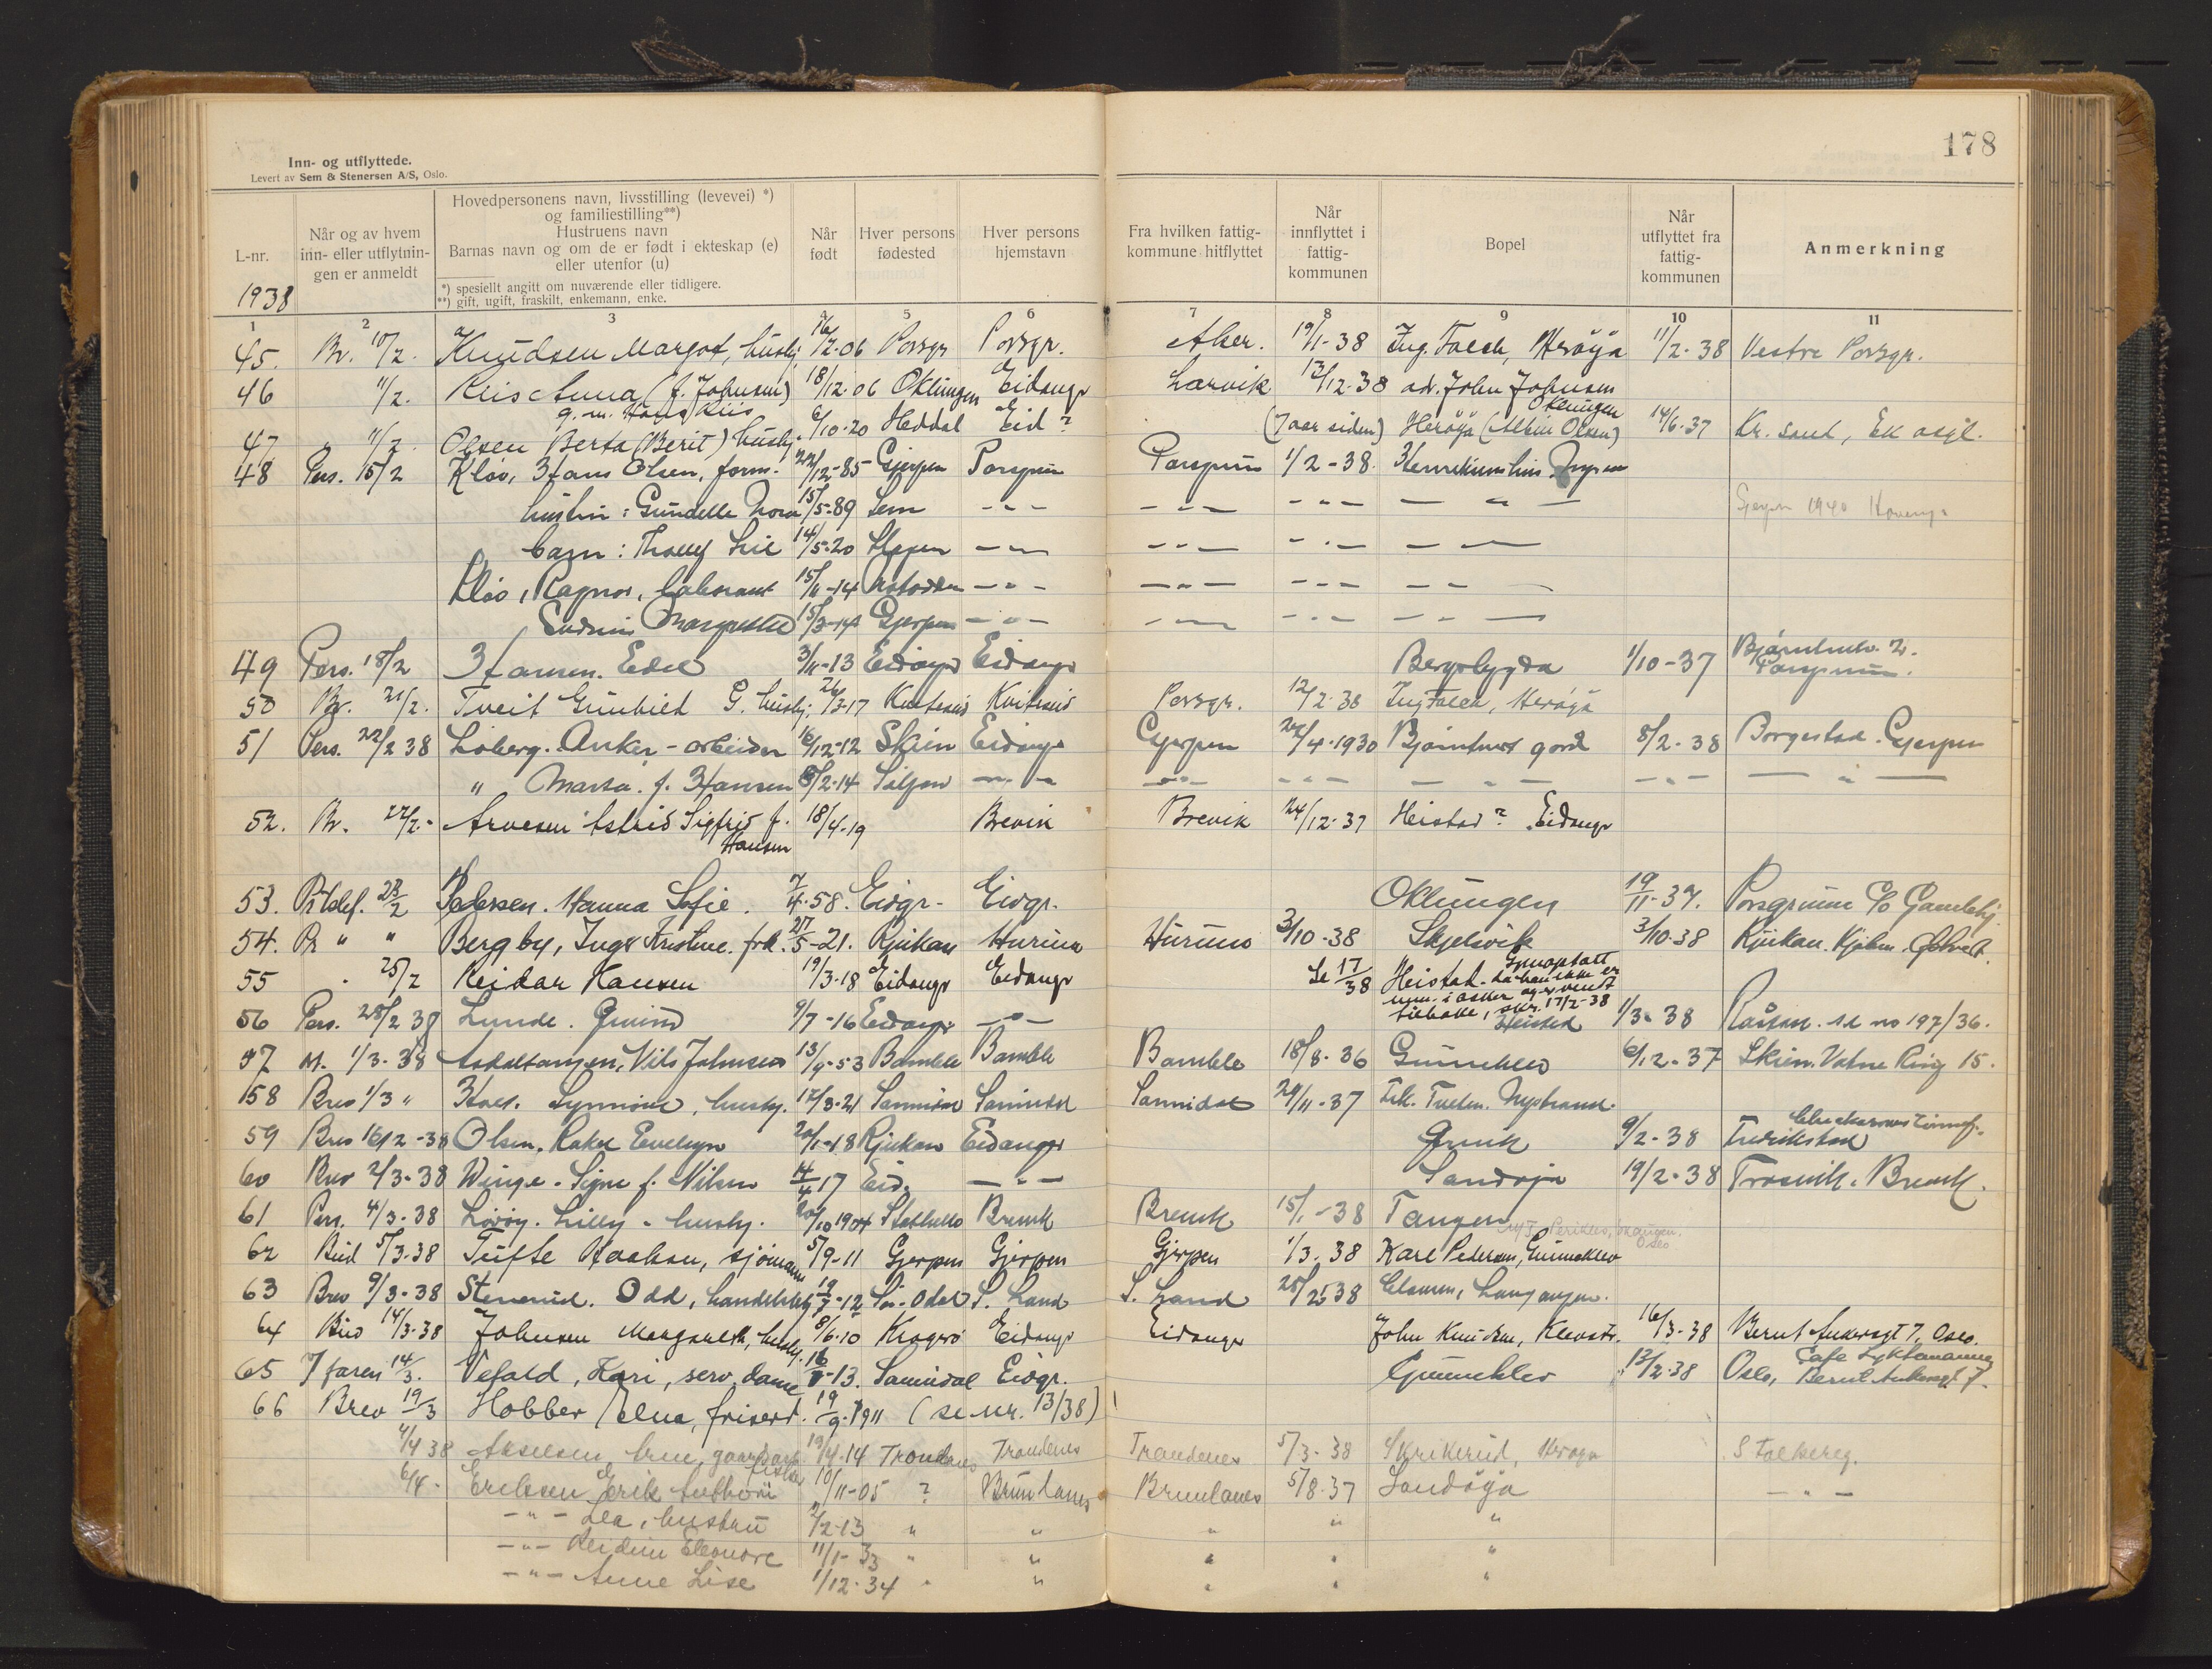 178
Inn- og utflyttede.
Levert av Sem & Stenersen A/S, Oslo.
L-nr.
1938
Når og av hvem inn- eller utflytnin- gen er anmeldt
Hovedpersonens navn, livsstilling (levevei) *)
og familiestilling**)
Hustruens navn
Barnas navn og om de er født i ekteskap (e)
eller utenfor (u)
*) spesiellt angitt om nuværende eller tidligere.
**) gift, ugift, fraskilt, enkemann, enke.
Når født
Hver persons fødested
Hver persons hjemstavn
Fra hvilken fattig- kommune hitflyttet
Når innflyttet i fattig- kommunen
Bopel
Når utflyttet fra fattig- kommunen
Anmerkning
1 2 3 4 5 6 7 8 9 10 11
45. Br. 10/2. Knudsen Margot, hushj. 16/2-06 Porsgr Porsgr. Aker. 19/1-38 Ing. Falck, Herøya 11/2-38 Vestre Porsgr.
46 11/2. Riis Anna (f. Johnsen) 18/12-06 Oklungen Eidangr Larvik 13/12-38 adr. John Johnsen
g.m. Hans Riis Oklungen
47 " 11/2. Olsen Berta (Berit) hushj. 6/10-20 Heddal Eid? (7 aar siden) Herøya (Albin Olsen) 14/6-37 Kr. sand,
48 Pers. 15/2 Kløv, Hans Olsen, form. 22/12-85 Gjerpen Porsgrunn Porsgrunn 1/2-38.
hustru: Gundelle Nora 15/5-89 Sem - " - - " - - " - - " -
Gjerpen 1940
barn: 14/5-20 - " - - " - - " - - " -
Kløv, Ragnar, laborant 15/11-14 Notodden - " - - " - - " - - " -
Gudrun Margrethe 15/3-14 Gjerpen - " - - " - - " - - " -
49 Pers. 18/2 Hansen. Edel 3/11-13 Eidangr Eidangr Bergsbygda 1/10-37 Bjørntvedtv. 2. Porsgrunn.
50 Br. 21/2. Tveit Gunhild G. hushj. 26/3-17 Kviteseid Kviteseid Porsgr. 12/2-38 Ing Falck, Herøya
51 Pers. 22/2 38 Loberg. Anker - arbeider 16/12-12 Skien Eidangr Gjerpen 24/4-1930 Bjørntvedt gård 8/2-38 Borgestad. Gjerpen
" Marta. f. Hansen 8/2-14 Siljan - " - - " - - " - - " - - " - - " -
52. Br. 22/2- Arvesen Astrid Sigfrid f. 18/4-19 Brevik Brevik 24/12-37 Heistad? Eidangr
Hansen
53. 23/2 Pedersen. Hanna Sofie. 7/4-58. Eidgr- Eidgr. Oklungen 19/11-37. Porsgrunn c/o Gamlehj.
54. Br " " Bergby, Inger Kristine. frk. 27/5-21. Rjukan Hurum Hurum 3/10-38 Skjelsvik 3/10-38 Rjukan.
55 " 25/2 Reidar Hansen 19/3-18 Eidangr Eidangr Se 17/38 Heistad. Gjenopptatt da han ikke er
i Asker og er vendt
tilbake, skr. 17/2-38
56 Pers. 28/2 38 Lunde. Gunnar 9/7-16 Eidangr - " - Heistad 1/3-38 Råsen. se no 197/36.
57 M. 1/3-38 Asdalstangen, Nils Johnsen 13/9-53 Bamble Bamble Bamble 18/8-36 Gunneklev 6/12-37 Skien. Vatne Ring 15.
158 Brev 1/3 " Synnøve, hushj. 17/3-21 Sannidal Sannidal Sannidal 29/11-37 Nystrand.
59 Brev 16/2-38 Olsen. Rakel Evelyn 20/1-18 Rjukan Eidangr Ørvik 9/2-38 Fredrikstad
60 Brev 2/3-38 Winge. Signe f. Nilsen 14/4 17 Eid. - " - Sandøya 19/2-38 Trosvik. Brevik.
61 Pers. 4/3-38 Løvøy. Lilly - hushj. 20/10 1904 Stathelle Brevik Brevik 15/1-38 Tangen
62 Bud 5/3-38 Tufte Haakon, sjømann 5/9-11 Gjerpen Gjerpen Gjerpen 1/3-38 Karl Pedersen, Gunneklev Oslo
63 Brev 9/3-38 Stenerud. Odd, handelsbetj. 19/7-12 Sør-Odal S. Land S. Land 25/2 38 Langangen.
64 Bud 14/3-38 Johnsen Margareth, hushj. 8/6-10 Kragerø Eidangr Eidanger John Knudsen, Klevstr. 16/3-38 Bernt Ankersgt 7, Oslo.
65 7 faren 14/3. Vefald, Kari, serv. dame 16/8-13. Sannidal Eidgr. Gunneklev 13/2-38 Oslo, Cafe Bernt Ankersgt 7.
66 Brev 19/3 Hobber Elna, friserd. 19/9-1911 (se nr. 13/38)
4/4 38 Akselsen Arne, gaardsarb 19/4-14 Trondenes Trondenes Trondenes 5/3-38 Skrikerud, Herøya
6/4- Eriksen Erik Anthoni fisker 10/11-05 ? Brunlanes Brunlanes 5/8-37 Sandøya - " -
- " - Lea, hustru 2/2-13 " " " " "
- " - Reidun Eleonore 11/1-33 " " " " "
- " - Anne Lise 1/12-34 " " " " "